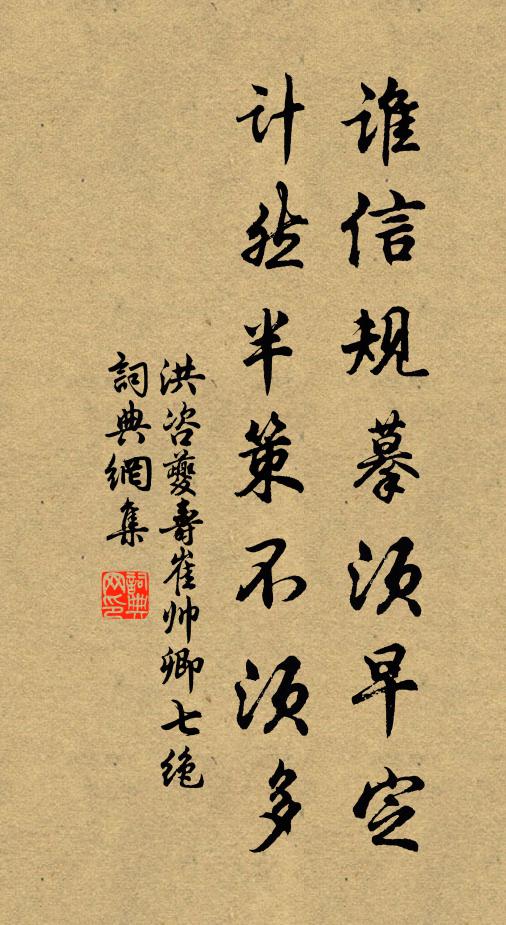 谁信规摹须早定
计然半策不须多
洪咨夔寿崔帅卿七绝
詞典網集
詞典网印